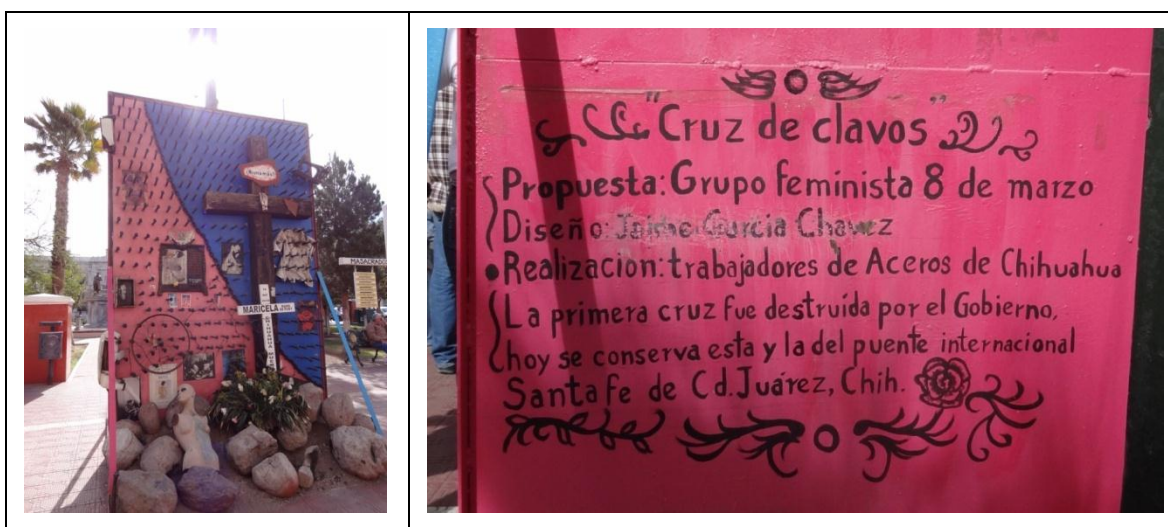 ¡Ni una más!
MASACRADO
MARICELA
"Cruz de clavos"
Propuesta: Grupo feminista 8 de marzo
Diseño: Jaime García Chavez
Realizacion: trabajadores de Aceros de Chihuahua
La primera cruz fue destruída por el Gobierno,
hoy se conserva esta y la del puente internacional
Santa Fe de Cd. Juárez, Chih.